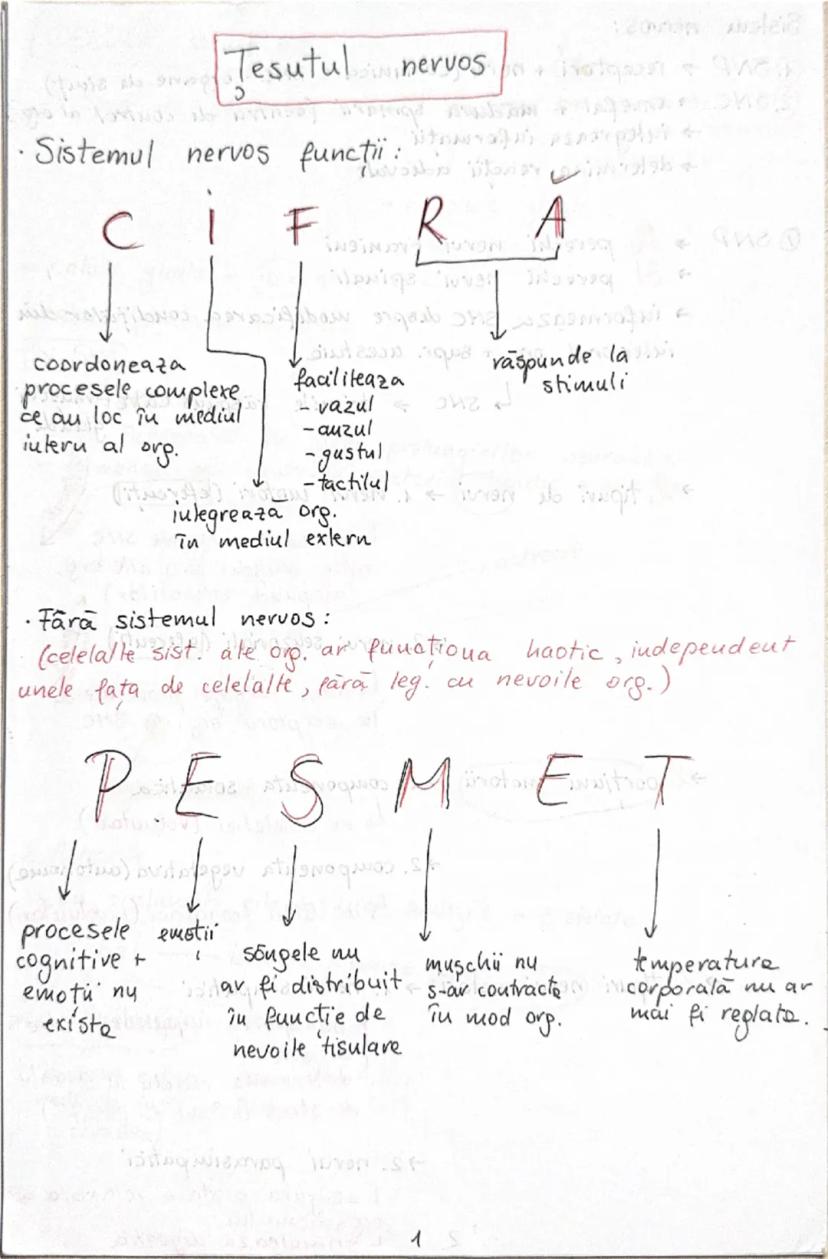 Țesutul nervos
· Sistemul nervos funcții:
C I F R Ă
coordoneaza
procesele complexe
ce au loc în mediul
intern al org.
integrează org.
în mediul extern
faciliteaza
- vazul
- auzul
- gustul
- tactilul
răspunde la
stimuli
· Fără sistemul nervos:
(celelalte sist. ale org. ar funcționa haotic, independent
unele fața de celelalte, fără leg. cu nevoile org.)
P E S M E T
procesele
cognitive +
emoții nu
existe
emoții
sângele nu
ar fi distribuit
în funcție de
nevoile tisulare
mușchii nu
s-ar contracta
în mod org.
temperatura
corporală nu ar
mai fi reglata.
1